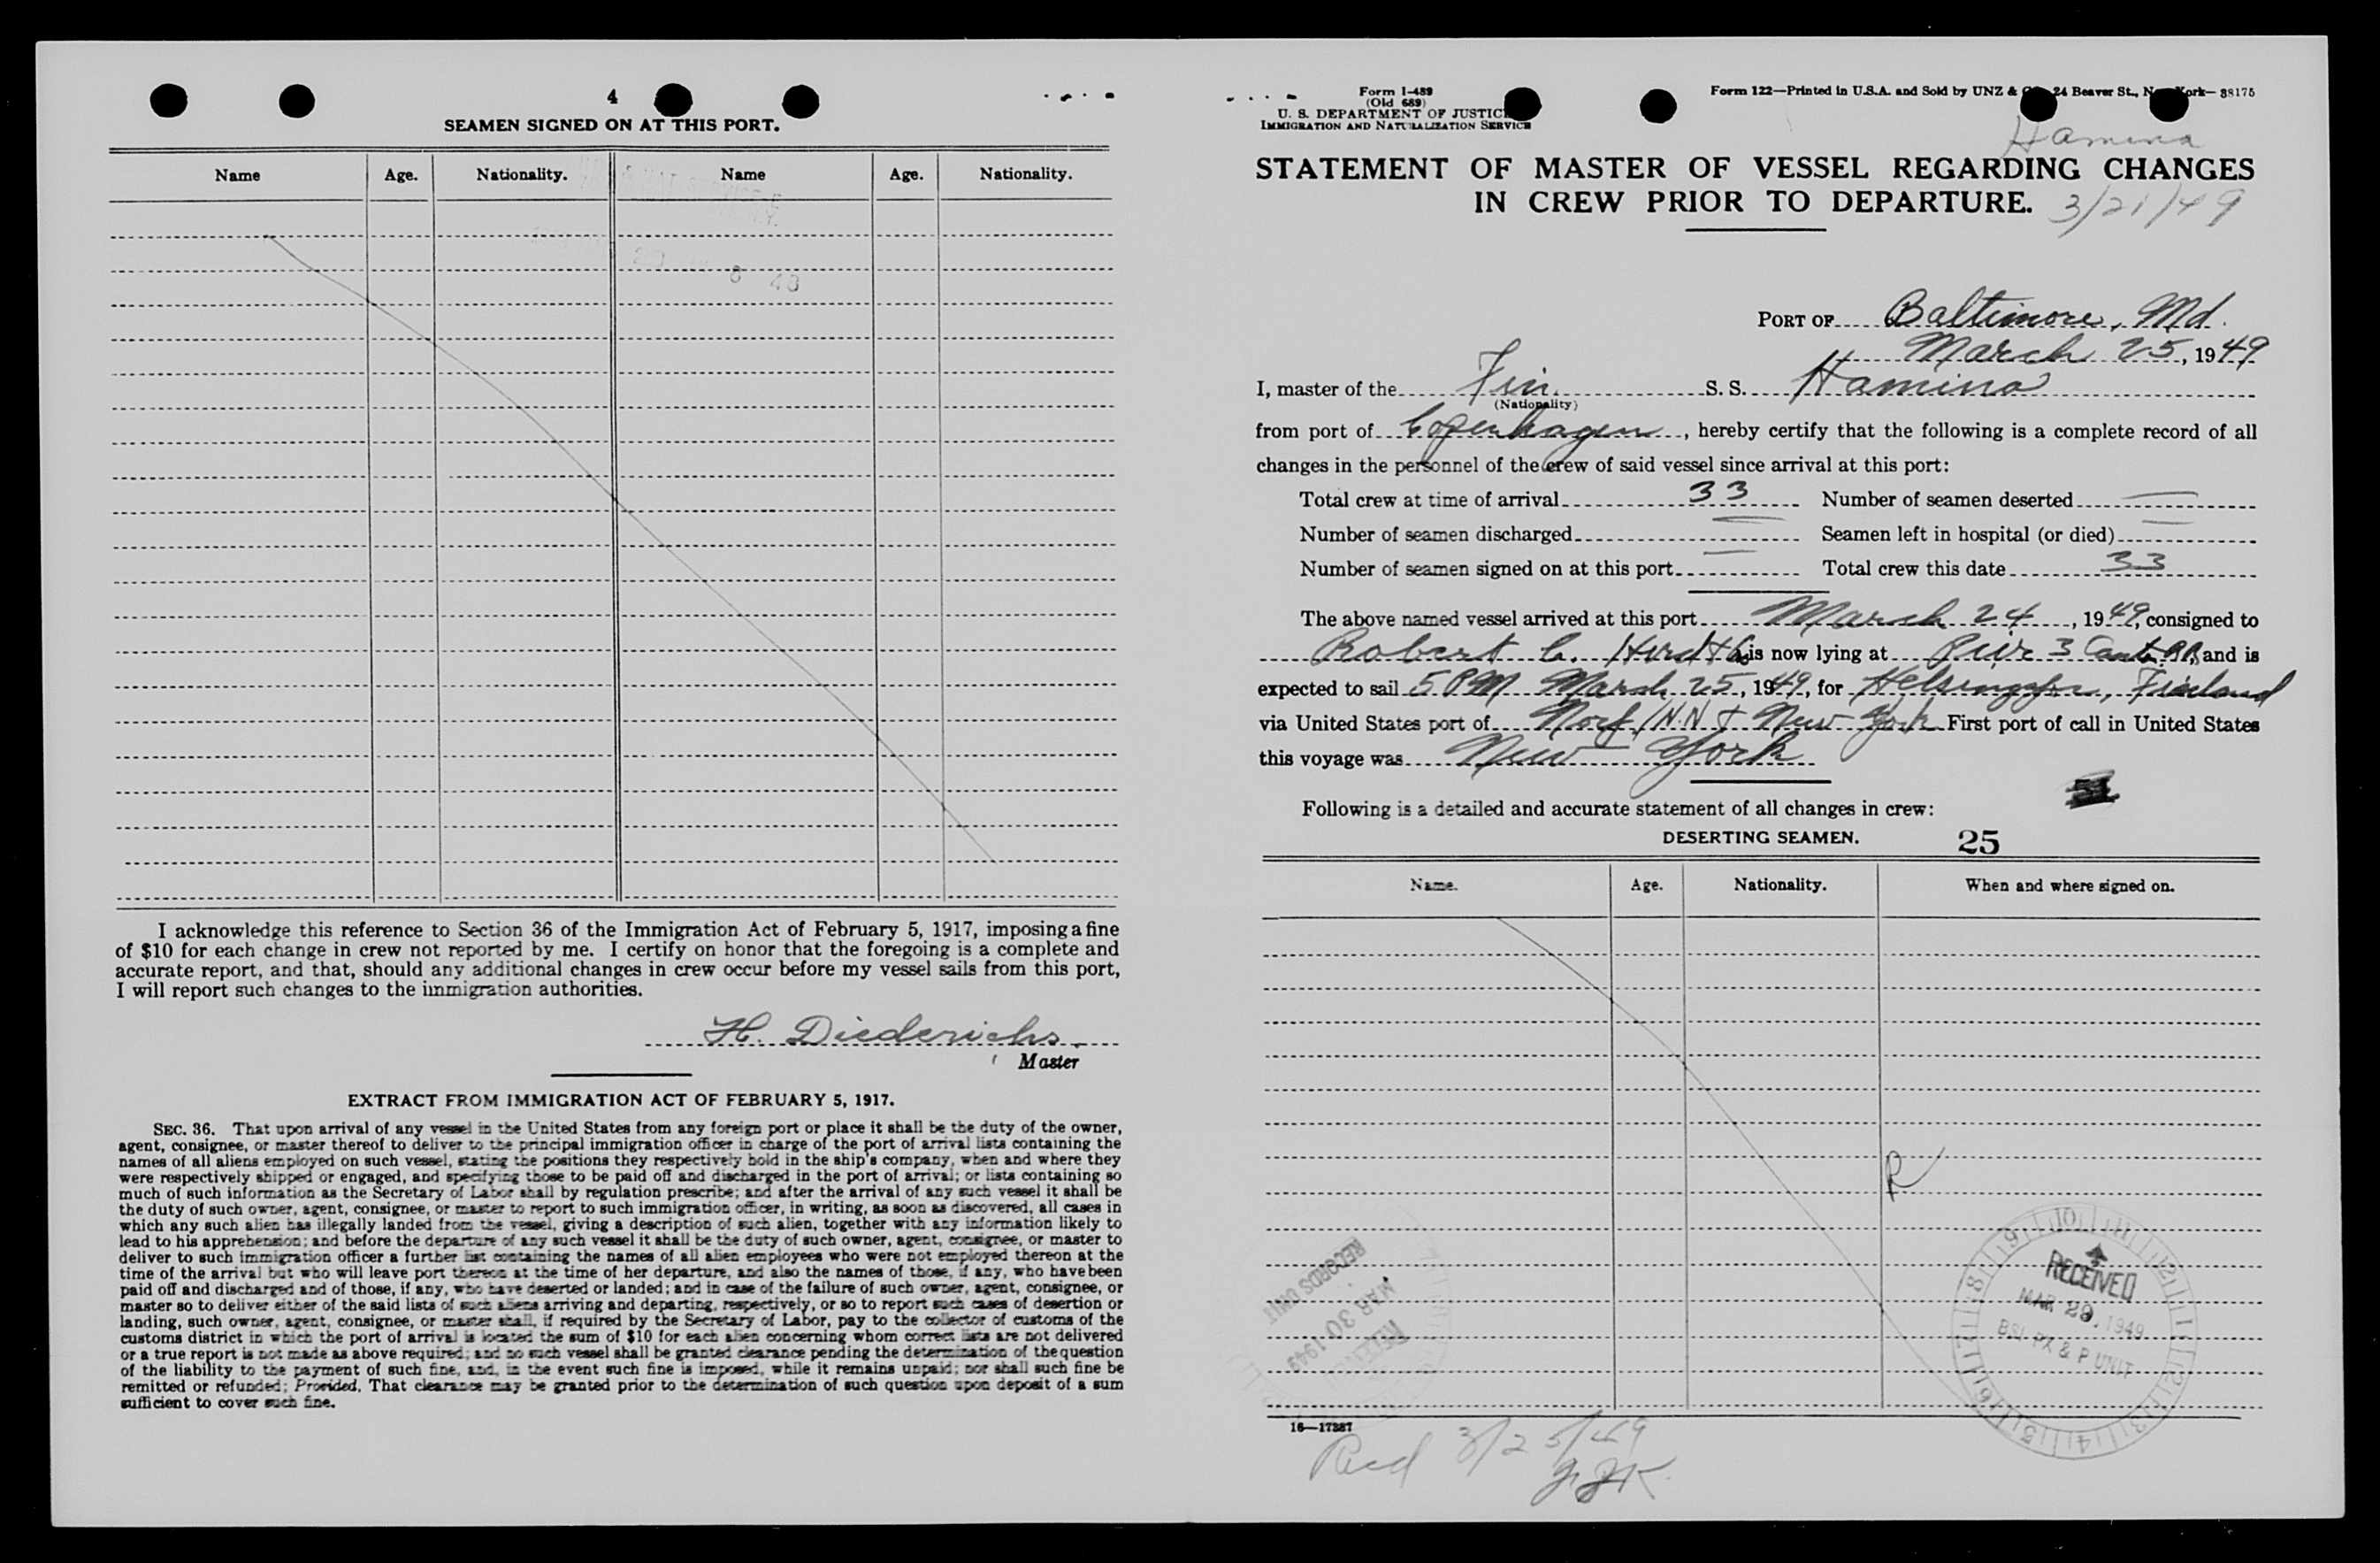 4
SEAMEN SIGNED ON AT THIS PORT.
Name Age. Nationality. Name Age. Nationality.
I acknowledge this reference to Section 36 of the Immigration Act of February 5, 1917, imposing a fine
of $10 for each change in crew not reported by me. I certify on honor that the foregoing is a complete and
accurate report, and that, should any additional changes in crew occur before my vessel sails from this port,
I will report such changes to the immigration authorities.
H. Diederichs.
Master
EXTRACT FROM IMMIGRATION ACT OF FEBRUARY 5, 1917.
SEC. 36. That upon arrival of any vessel in the United States from any foreign port or place it shall be the duty of the owner,
agent, consignee, or master thereof to deliver to the principal immigration officer in charge of the port of arrival lists containing the
names of all aliens employed on such vessel, stating the positions they respectively hold in the ship's company, when and where they
were respectively shipped or engaged, and specifying those to be paid off and discharged in the port of arrival; or lists containing so
much of such information as the Secretary of Labor shall by regulation prescribe; and after the arrival of any such vessel it shall be
the duty of such owner, agent, consignee, or master to report to such immigration officer, in writing, as soon as discovered, all cases in
which any such alien has illegally landed from the vessel, giving a description of such alien, together with any information likely to
lead to his apprehension; and before the departure of any such vessel it shall be the duty of such owner, agent, consignee, or master to
deliver to such immigration officer a further list containing the names of all alien employees who were not employed thereon at the
time of the arrival but who will leave port thereon at the time of her departure, and also the names of those, if any, who have been
paid off and discharged and of those, if any, who have deserted or landed; and in case of the failure of such owner, agent, consignee, or
master so to deliver either of the said lists of such aliens arriving and departing, respectively, or so to report such cases of desertion or
landing, such owner, agent, consignee, or master shall, if required by the Secretary of Labor, pay to the collector of customs of the
customs district in which the port of arrival is located the sum of $10 for each alien concerning whom correct lists are not delivered
or a true report is not made as above required; and no such vessel shall be granted clearance pending the determination of the question
of the liability to the payment of such fine, and, in the event such fine is imposed, while it remains unpaid; nor shall such fine be
remitted or refunded; Provided, That clearance may be granted prior to the determination of such question upon deposit of a sum
sufficient to cover such fine.
Form I-489
(Old 689)
U. S. DEPARTMENT OF JUSTICE
IMMIGRATION AND NATURALIZATION SERVICE
Form 122—Printed in U.S.A. and Sold by UNZ & 24 Beaver St., New York—38175
Hamina
STATEMENT OF MASTER OF VESSEL REGARDING CHANGES
IN CREW PRIOR TO DEPARTURE. 3/21/49
PORT OF Baltimore, Md.
March 25, 1949
I, master of the Fin. S. S. Hamina
(Nationality)
from port of Copenhagen, hereby certify that the following is a complete record of all
changes in the personnel of the crew of said vessel since arrival at this port:
Total crew at time of arrival 33 Number of seamen deserted —
Number of seamen discharged — Seamen left in hospital (or died) —
Number of seamen signed on at this port — Total crew this date 33
The above named vessel arrived at this port March 24, 1949, consigned to
Robert C. Herd & Co is now lying at Pier 3 and is
expected to sail 5 PM March 25, 1949, for Helsingfors, Finland
via United States port of Norf/N.N & New York First port of call in United States
this voyage was New York
Following is a detailed and accurate statement of all changes in crew:
DESERTING SEAMEN. 25
Name. Age. Nationality. When and where signed on.
R
RECORDS UNIT
MAR 30 1949
RECEIVED
MAR 29. 1949
BSI PX & P UNIT
16—17387
Recd 3/25/49